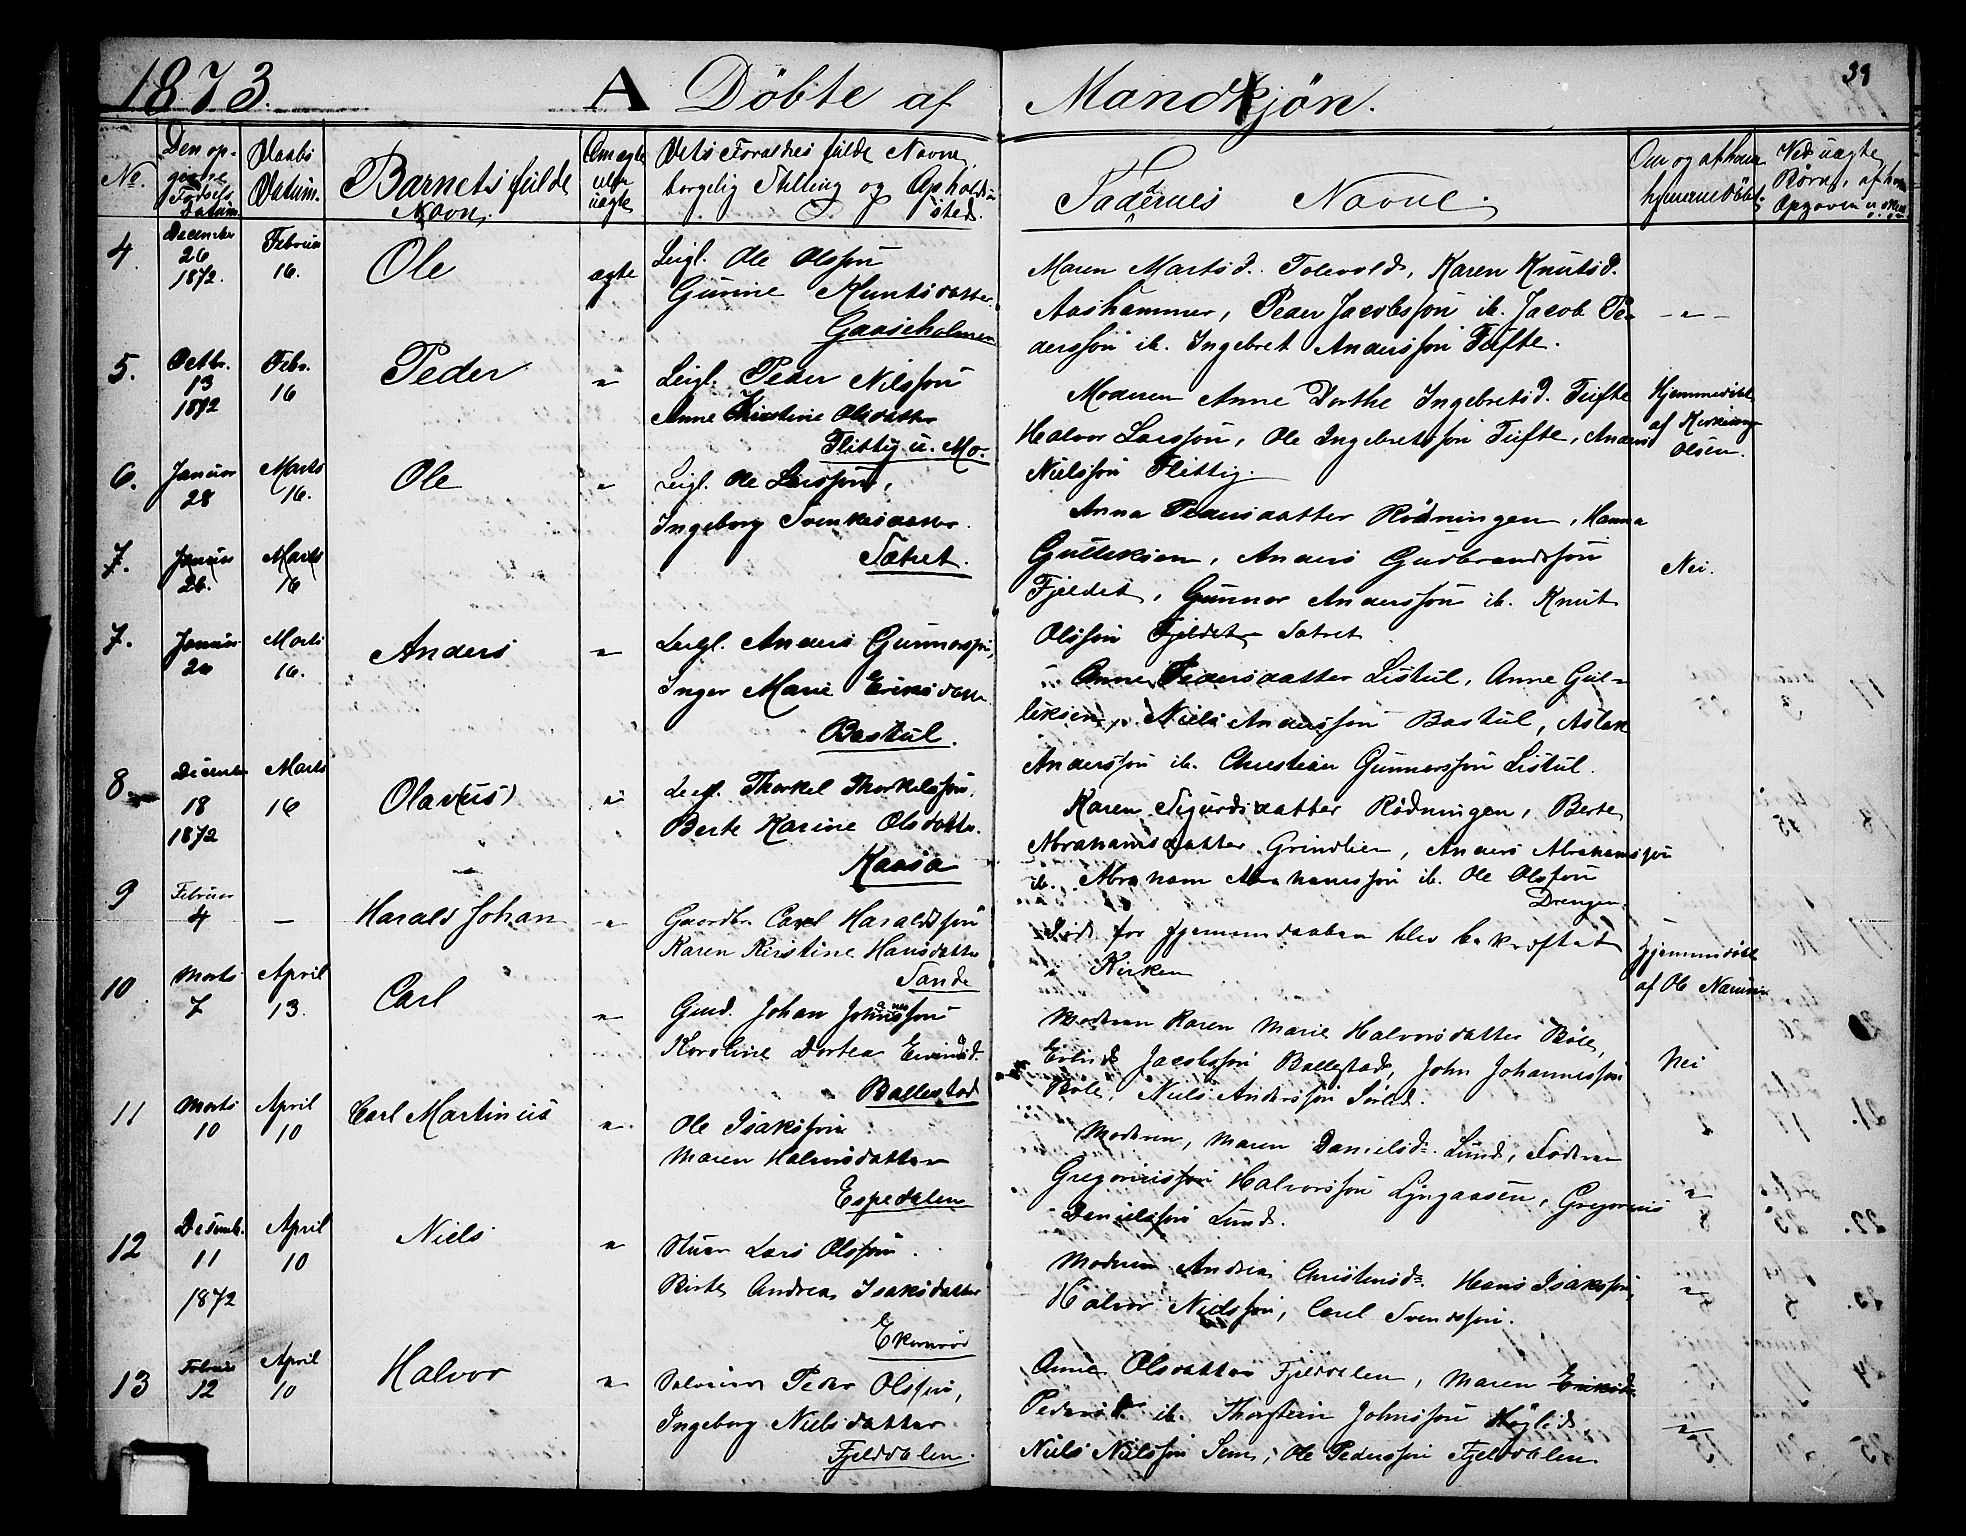 1873. A Döbte af Mandkjön. 39
No. Den op- givne Födsels Datum Daabs Datum. Barnets fulde Navn. Om ægte eller uægte Dets Forældres fulde Navne, borgelig Stilling og Opholds sted. Faddernes Navne. Om og af hvem hjemmedöbt. Ved uægte Börn, af hvem Opgaven
4. December 26 1872. Februar 16. Ole ægte Leigl. Ole Olssön
Gurine Knutsdatter
Gaaseholmen
Maren Martsd. Tolevold, Karen Knutsd.
Aashammer, Peder Jacobssön ib. Jacob Pe-
derssön ib. Ingebret Anderssön Tufte.
5. Octbr. 13 1872 Febr. 16 Peder " Leigl. Peder Nilssön
Anne Kirstine Olsdatter
Flittig u. Mo.
Moderen Anne Dorthe Ingebretsd. Tufte
Halvor Larssön, Ole Ingebretssön Tufte, Anders
Nielssön Flittig.
Hjemmedöbt af Olsen.
6. Januar 28 Marts 16. Ole " Leigl. Ole Larssön,
Ingeborg Svenkesdatter.
Sætret.
Anna Pedersdatter Rödningen, Hanna
Gulleksen, Anders Gudbrandssön
Fjeldet, Gunnar Anderssön ib. Knut
Olssön Fjeldet Sætret
Nei.
7. Januar 26. Marts 16
7. Januar 26 Marts 16. Anders " Leigl. Anders Gunnarssön,
Inger Marie Eriksdatter
Bestul.
Anne Pedersdatter Listul, Anne Gul-
leksen, Niels Anderssön Bestul, Aslak
Anderssön ib. Christian Gunnarssön Listul.
8 December 18 1872 Marts 16 Olav(us) " Leigl. Thorkel Thorkelssön,
Berte Karine Olsdatter.
Kaasa
Karen Sigurdsdatter Rödningen, Berte
Abrahamsdatter Grindlien, Anders Abrahamssön
ib. Abraham Abrahamssön ib. Ole Olssön
Drengen.
9 Februar 4 – Harald Johan " Gaardbr. Carl Haraldssön
Karen Kirstine Hansdatter
Sande
Död för hjemmedaaben blev bekræftet
i Kirken
Hjemmedöbt af Ole
10 Marts 7 April 13. Carl " Gmd. Johan Johannessön
Karoline Dortea Eivindsd.
Ballestad
Moderen Karen Marie Halvorsdatter Böle,
Eivind Jacobssön Ballestad, John Johannessön
Böle, Niels Anderssön
Nei
11 Marts 10 April 10 Carl Martinius " Ole Isakssön
Maren Halvorsdatter
Espedalen
Moderen, Maren Danielsd. Lund, Faderen
Gregoriussön Halvorssön Lyngaasen, Gregorius
Danielssön Lund.
"
12 Desemb. 11 1872 April 10 Niels " Lars Olssön.
Birte Andrea Isaksdatter
Ekornröd
Moderen Andrea Christensd. Hans Isakssön,
Halvor Nielssön, Carel Svendssön.
"
13 Februar 12 April 10 Halvor " Selveier Peder Olssön,
Ingeborg Nielsdatter
Fjelddalen.
Anne Olsdatter Fjelddalen, Maren Eriksd.
Pedersd. ib. Thorstein Johnssön
Niels Nielssön Sem, Ole Pederssön Fjelddalen
"